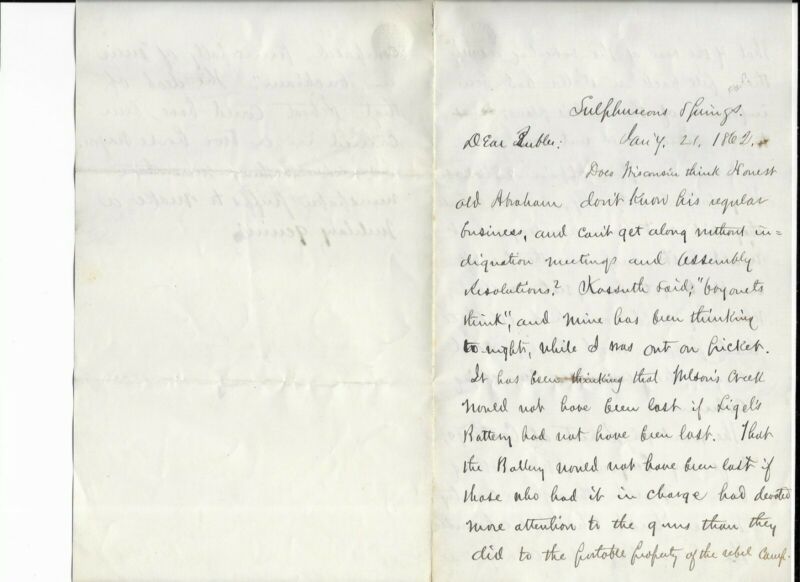 Sulphureous Springs.
Dear Rublee: Jan'y. 21, 1862.
Does Wisconsin think Honest
old Abraham don't know his regular
business, and can't get along without in=
dignation meetings and Assembly
resolutions? Kossuth said; "bayonets
think", and mine has been thinking
to-night, while I was out on picket.
It has been thinking that Wilson's Creek
would not have been lost if Sigel's
Battery had not have been lost. That
the Battery would not have been lost if
those who had it in charge had devoted
more attention to the guns than they
did to the portable property of the rebel camp.